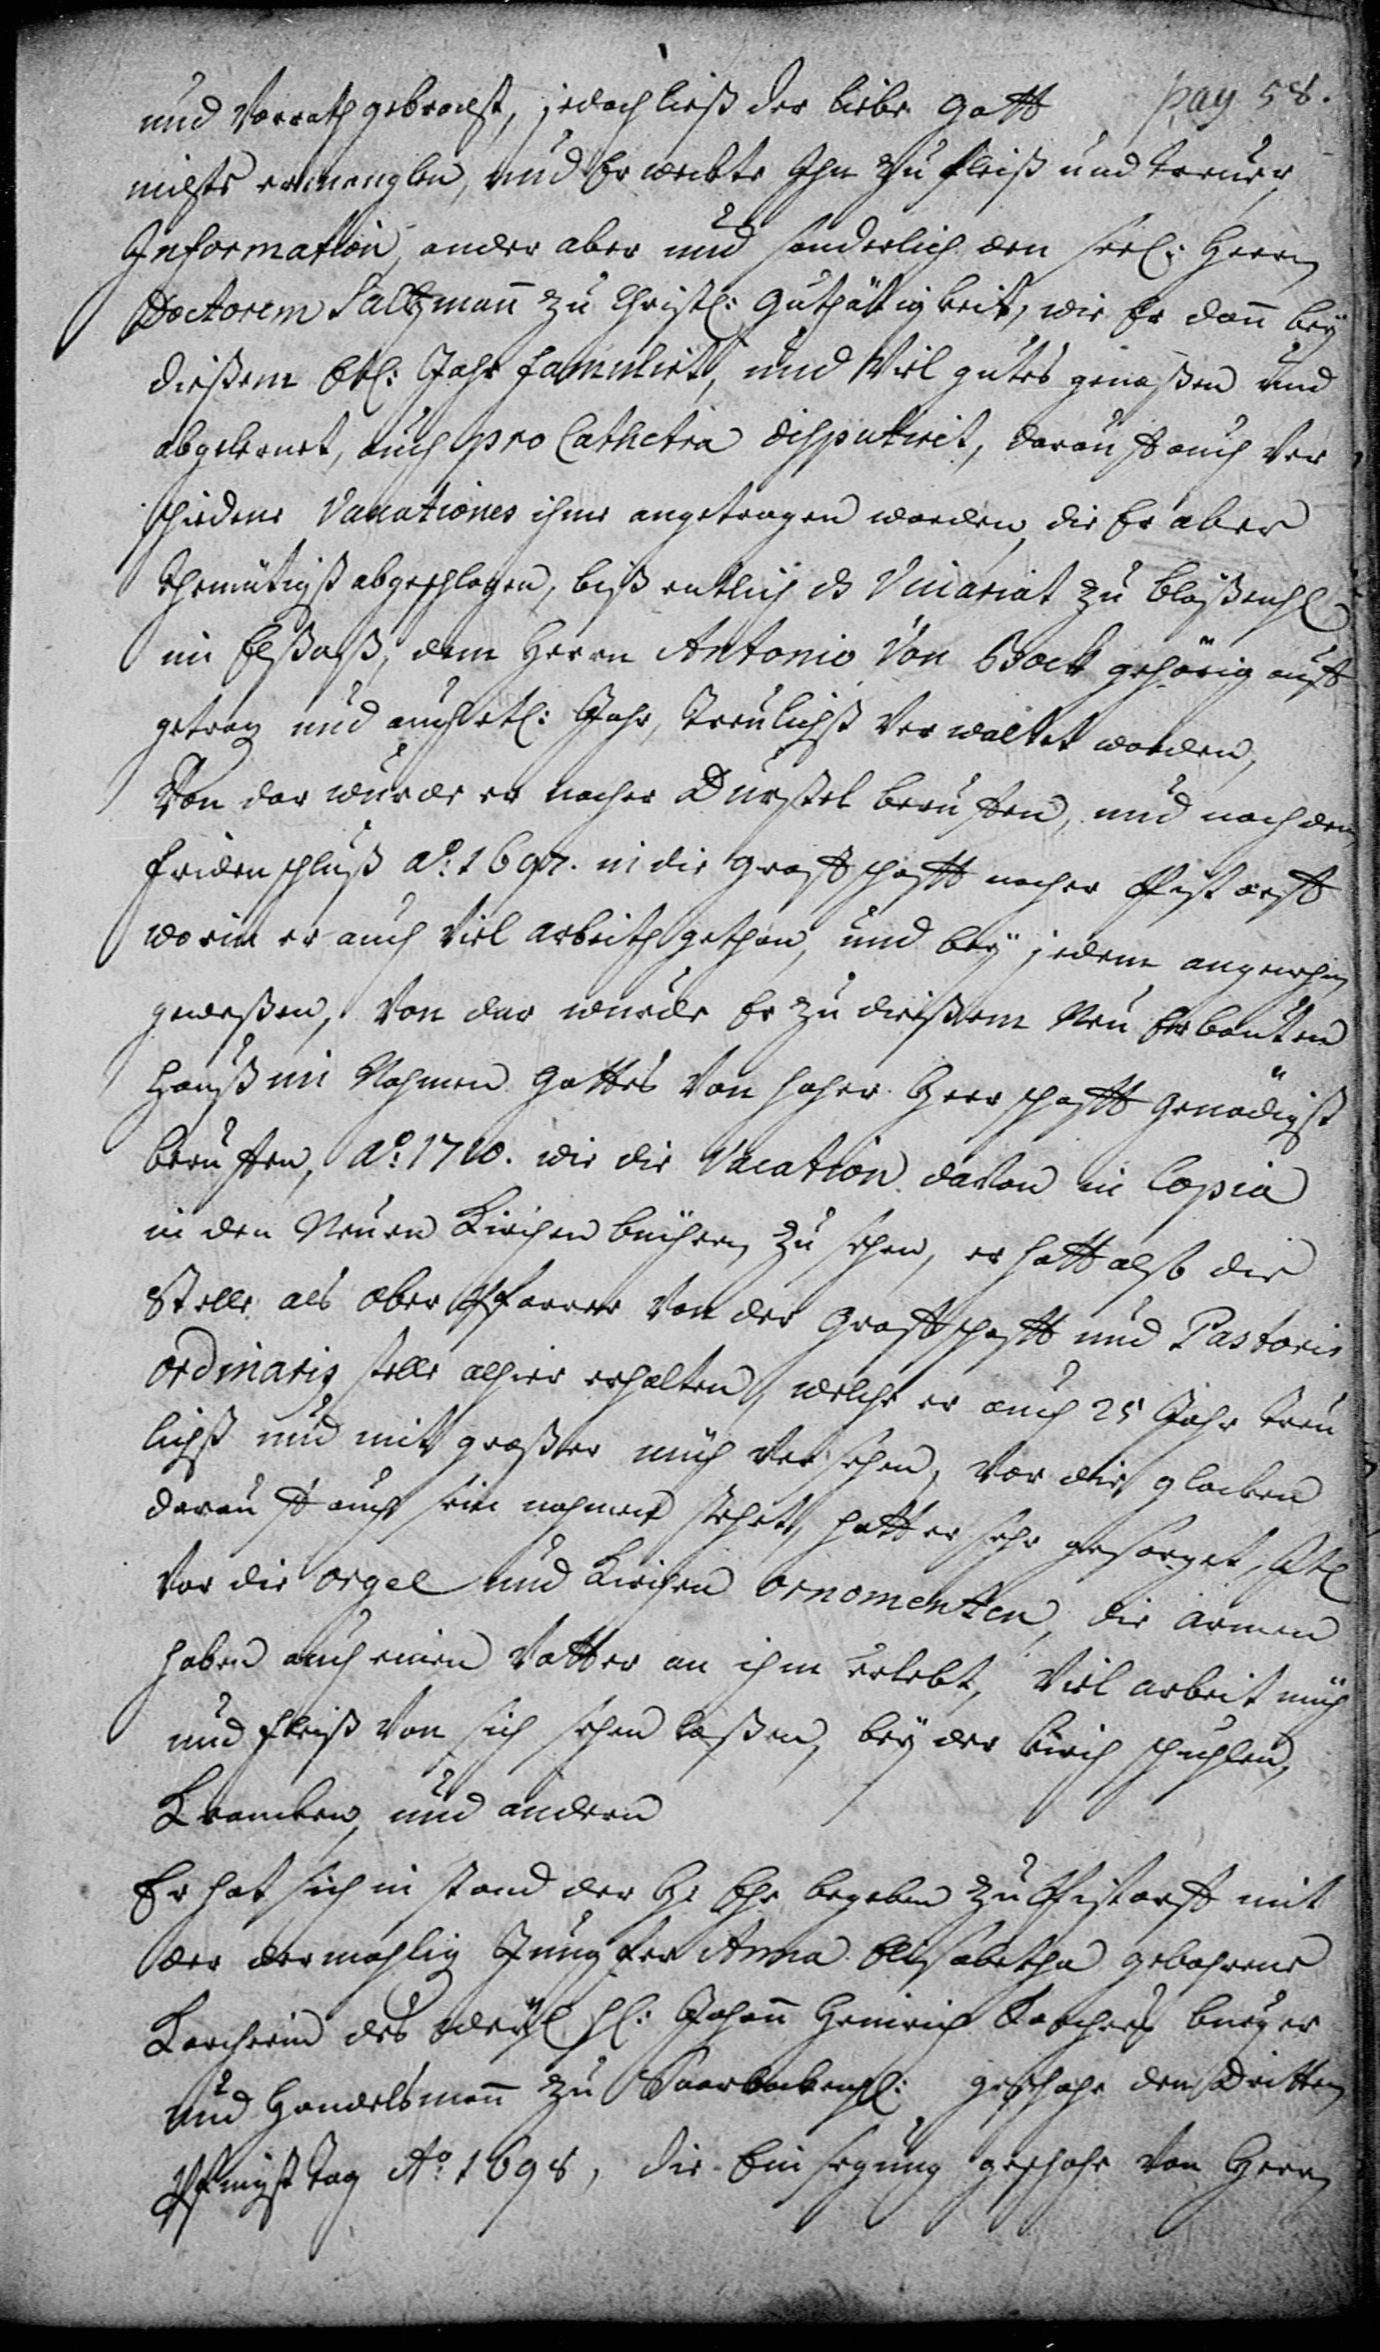 pag 58.
und Vorrath gebracht, jedoch ließ der liebe Gott
nichts ermanglen, und Er weckte Ihn zu fleiß und treuer
Information, ander aber und sonderlich den seel: Herrn
Doctorem Saltzmann zu Christl: Guthätigkeit, wie Er dann bey
dießem Etl: Jahr famulirt, und Viel gutes genoßen und
abgelernet, auch pro Cathetra disputirt, darauf auch Ver
schiedene Vacationes ihme angetragen worden, die Er aber
abgeschlagen, biß entlich ds Vicariat zu Bläßenh
im Elßaß, dem Herrn Antonio Von Bock gehörig auff
getrag und auch etl: Jahr, treulichst Verwaltet worden,
Von dar wurde er nacher Durstel beruffen, und nach dem
friden schluß Aº: 1697. in die Graffschafft nacher Pistorff
worin er auch Viel arbeith gethan, und bey jedem angenehm
geweßen, Von dar wurde Er zu dießem Neu Erbauten
Hauß im Nahmen Gottes Von hoher Herrschafft Genädigst
beruffen, Aº: 1710. wie die Vacation davon in Copia
in den Neuen Kirchen büchern zu sehen, er hatt alß die
Stelle als Ober Pfarrer Von der Graffschafft und Pastoris
ordinaris stelle alhier erhalten, welche er auch 25 Jahr treu
lichst und mit großer müh Versehen, Vor die glocken
darauff auch sein nahmen stehet, hatt er sehr gesorget,
Vor die orgel und Kirchen ornomenten, die armen
haben auch einen Vatter an ihm erlebt, Viel arbeit müh
und fleiß Von sich sehen laßen, bey der Kirch schuhlen,
Krancken, und andern
Er hat sich in stand der H: Ehe begeben zu Pistorff mit
der dermahlig Jungfer Anna Elisabetha gebohrene
Karcherin des Johann Heinrich Karchers burger
und Handelsmann zu Saarbocken: geschahe den Dritten
Pfingst tag Aº: 1698, die Einsegnung geschahe Von Herrn